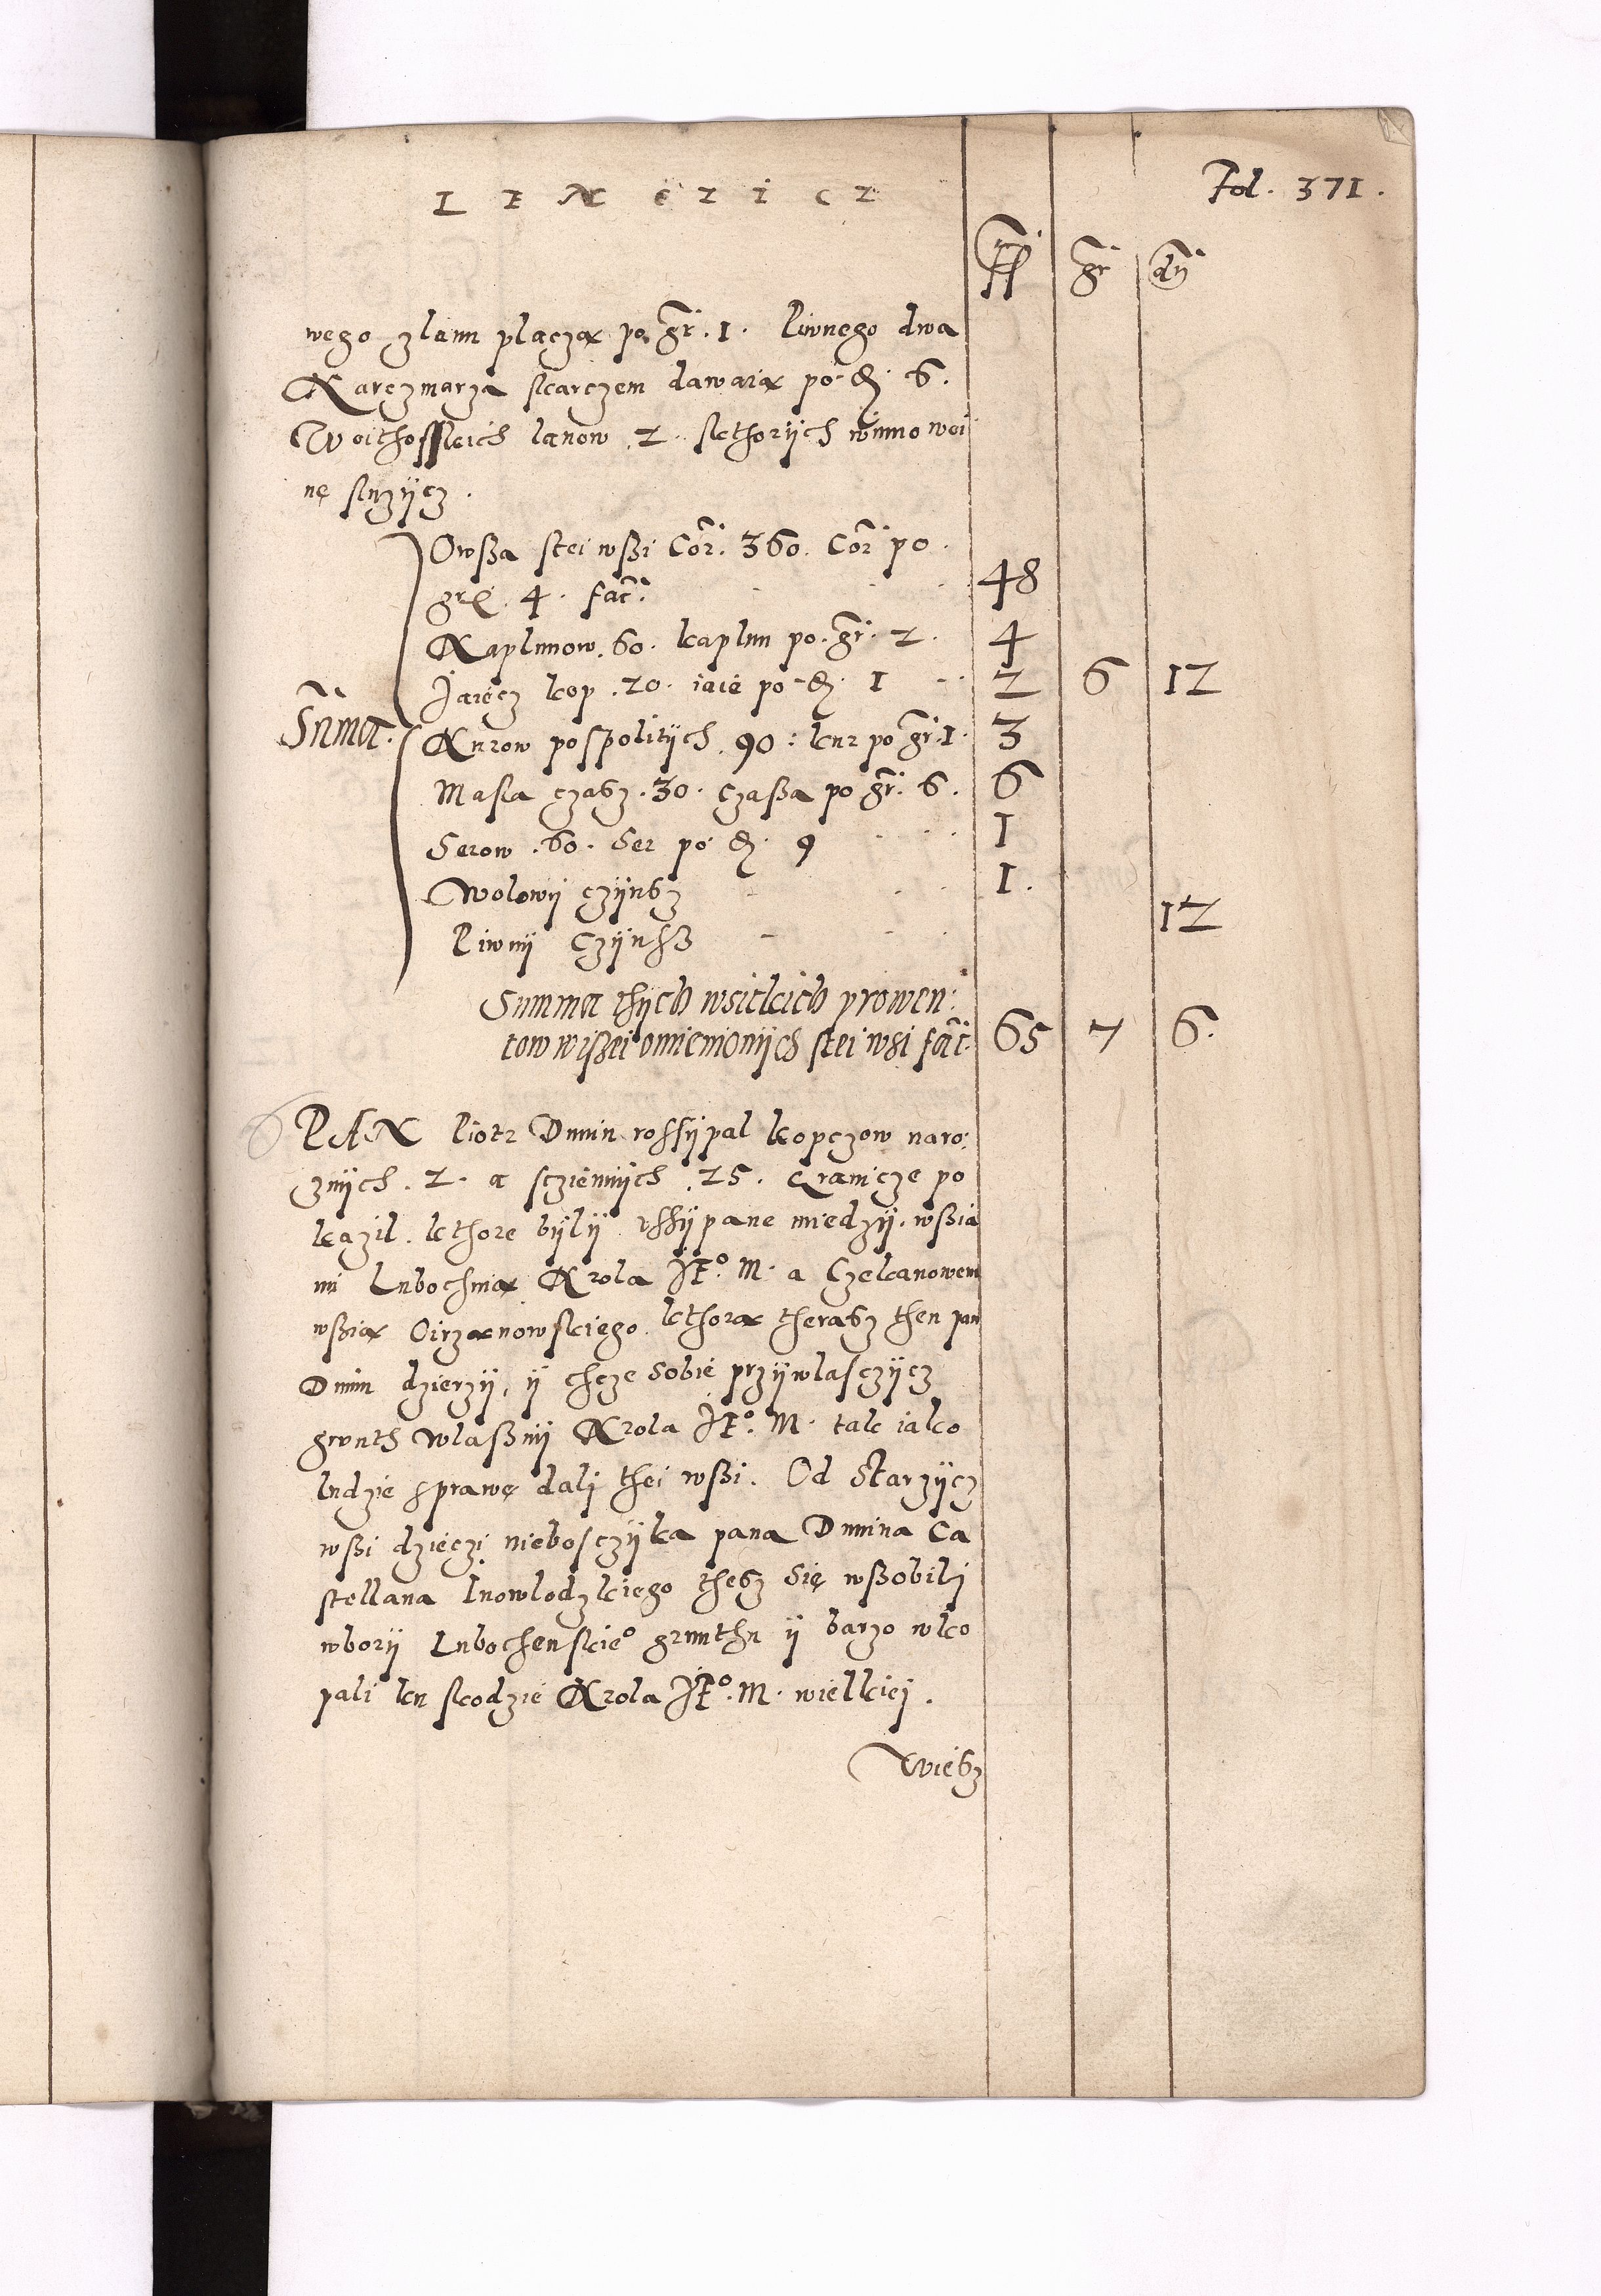 LENCZICZ
Fol. 371.
ff gr dn
wego zlanu placzą po gr. 1. Piwnego dwa
Karczmarza skarczem dawaią po d. 6.
Woithoffskich lanow 2. skthorych winno woi
nę sluzycz.
Owßa stei wßi Cor. 360. Cor po
gr. 4. fac. 48
Kaplunow. 60. kaplun po. gr. 2. 4
Jaiecz kop. 20. iaie po d. 1 2 6 12
Suma.
Kurow pospolitych. 90: kur po gr. 1. 3
Masla czasz. 30. czaßa po gr. 6. 6
Serow. 60. Ser po d. 9 1
Wolowy czynsz 1.
Piwny Czynsz 12
Summa thych wsitkich prowen:
tow wiszei omienionych stei wsi fac. 65 7 6.
PAN Piotr Dunin rossypal kopczow naro:
znych. 2. a scziennych. 25. Granicze po
kazil. kthore byly vssypane miedzy. wßia
mi Lubochnią Krola JE°. M. a Czekanowem
wßią Oirzanowskiego. kthorą therasz then pan
Dunin dzierzy, y chcze sobie przywlasczycz
grunth wlaßny Krola JE°. M. tak iako
ludzie sprawę dali thei wßi. Od Starzycz
wßi dzieczi nieboszczyka pana Dunina Ca
stellana Inowlodzkiego thesz się wßobili
wbory Lubochenskie° grunthu y barzo wko
pali ku skodzie Krola JE°. M. wielkiej.
Wiesz